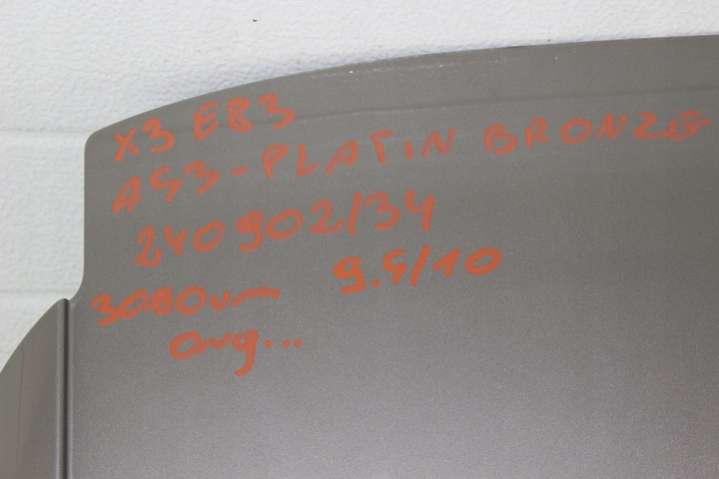 X3 E83
A53-PLATIN BRONZE
240902/34
3080um 9.5/10
avg...